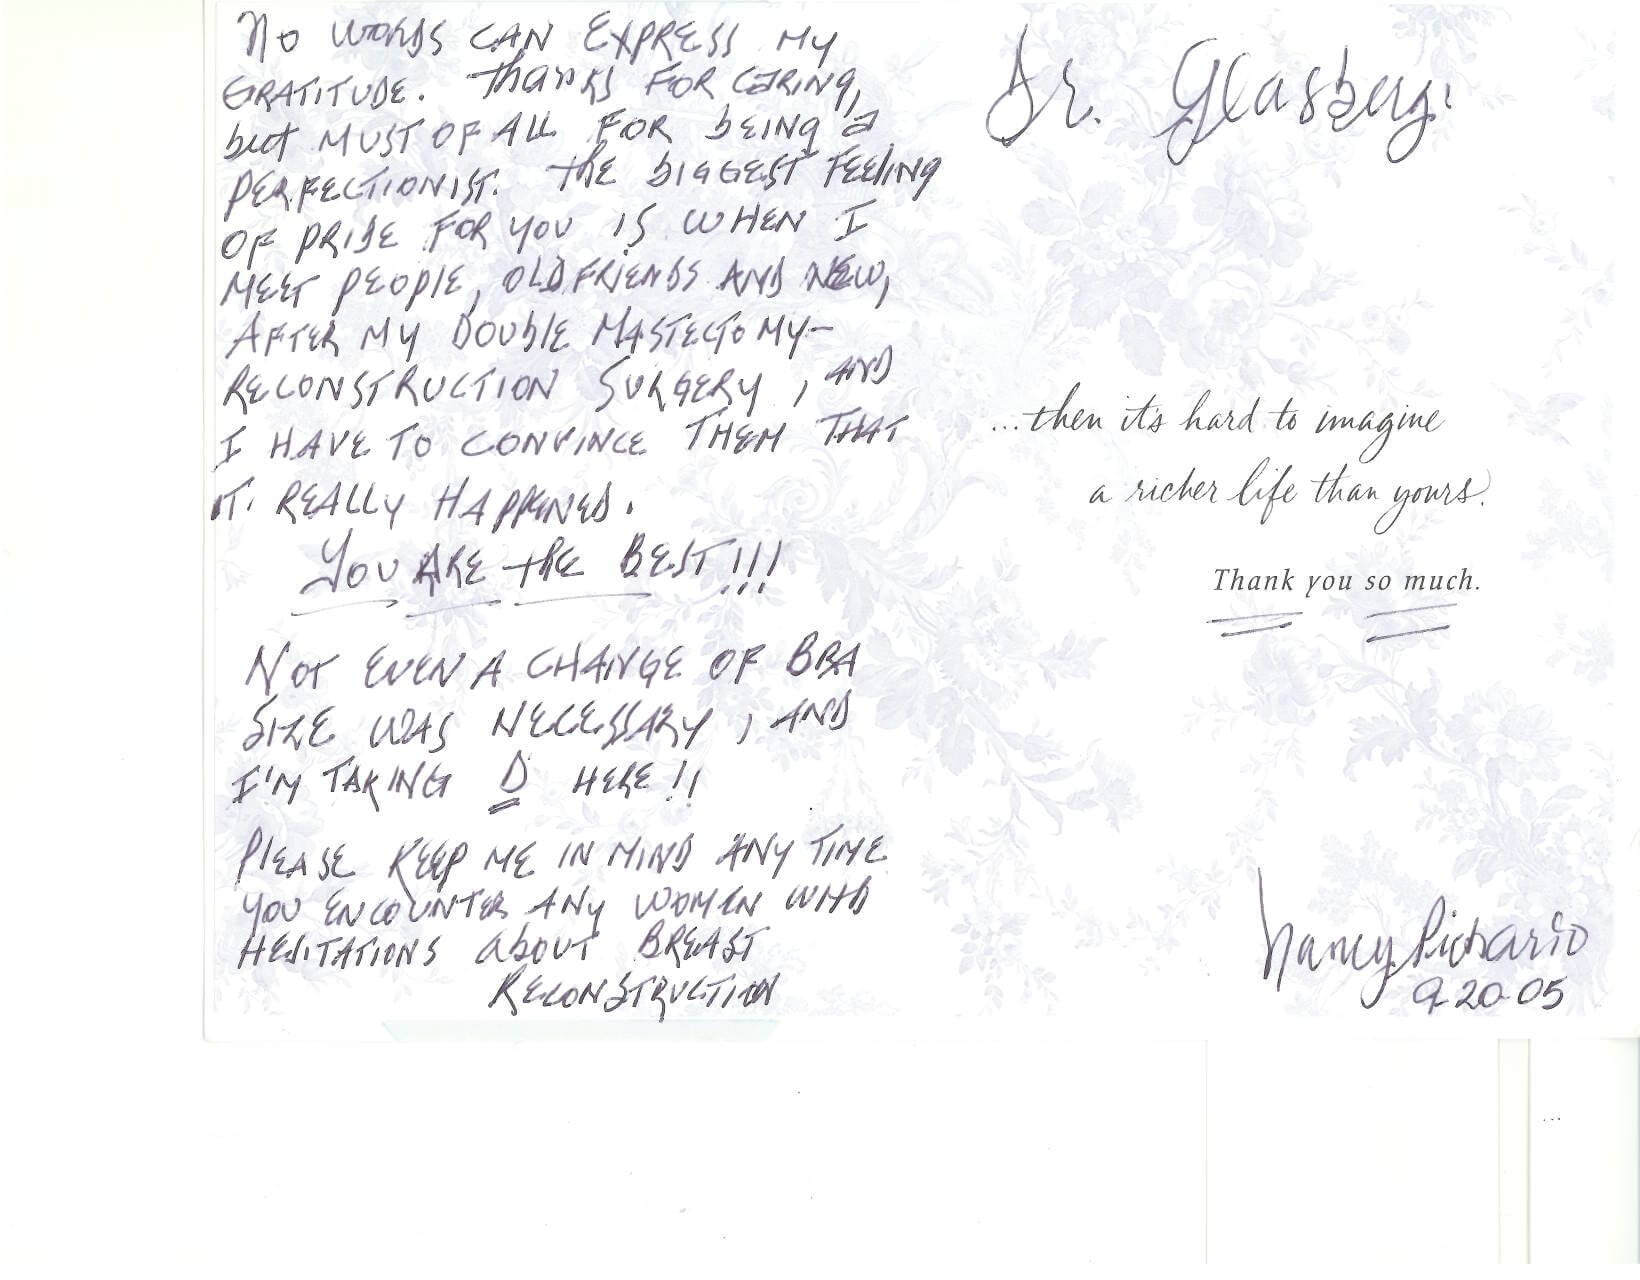 No words can express my
gratitude. Thanks for caring,
but must of all for being a
perfectionist. The biggest feeling
of pride for you is when I
meet people, old friends and new,
after my double mastectomy-
reconstruction surgery, and
I have to convince them that
it really happened.
You are the best!!!
Not even a change of bra
size was necessary, and
I'm taking D here!!
Please keep me in mind any time
you encounter any women with
hesitations about breast
reconstruction
Dr. Glasberg:
...then it's hard to imagine
a richer life than yours.
Thank you so much.
Nancy
9-20-05